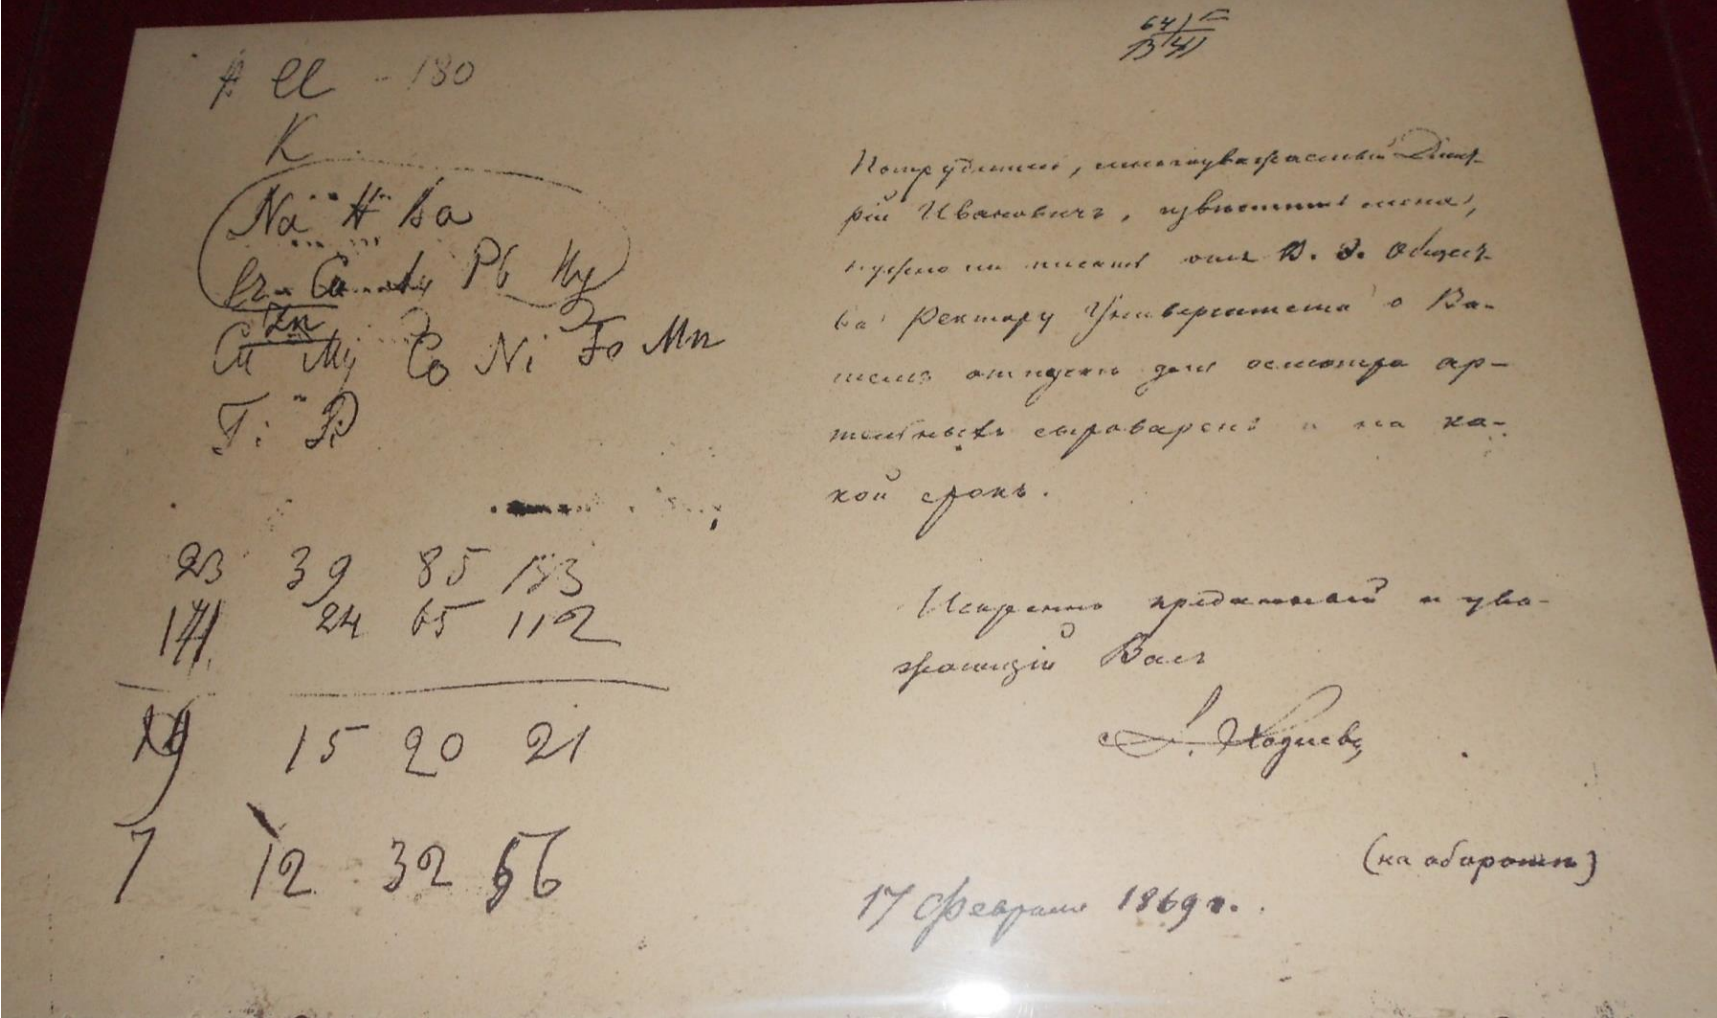 Cl - 180
K
Na H Ba
Ca Pb Hg
Zn
Cu Mg Co Ni Fe Mn
Ti
23 39 85 133
24 65 112
15 20 21
7 12 32
64
Потрудитесь, многоуважаемый Дмит-
рій Ивановичъ, извѣстить меня,
нужно ли писать отъ В. Э. Общест-
ва Ректору Университета о Ва-
шемъ отпускѣ для осмотра ар-
тельныхъ сыроваренъ и на ка-
кой срокъ.
Искренно преданный и ува-
жающій Васъ
А. Ходневъ
(на оборотѣ)
17 февраля 1869 г.